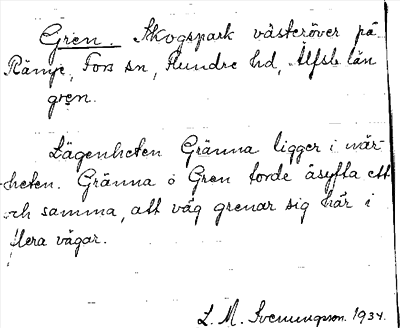 Gren. Skogspark västeröver på
Rämje, Fors sn, Flundre hd, Älfsb län
gren.
Lägenheten Gränna ligger i när-
heten. Gränna o Gren torde åsyfta ett
och samma, att väg grenar sig här i
flera vägar.
L. M. Svenungsson. 1934.